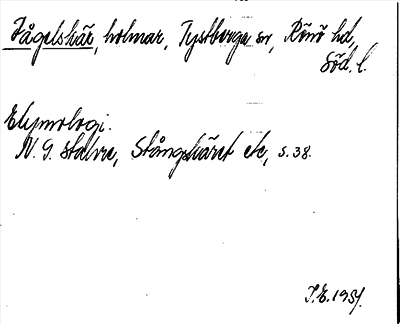 Fågelskär, holmar, Tystberga sn, Rönö hd,
Söd. l.
Etymologi.
N. G. Stahre, Stångskäret etc, s. 38.
I.E. 1951.